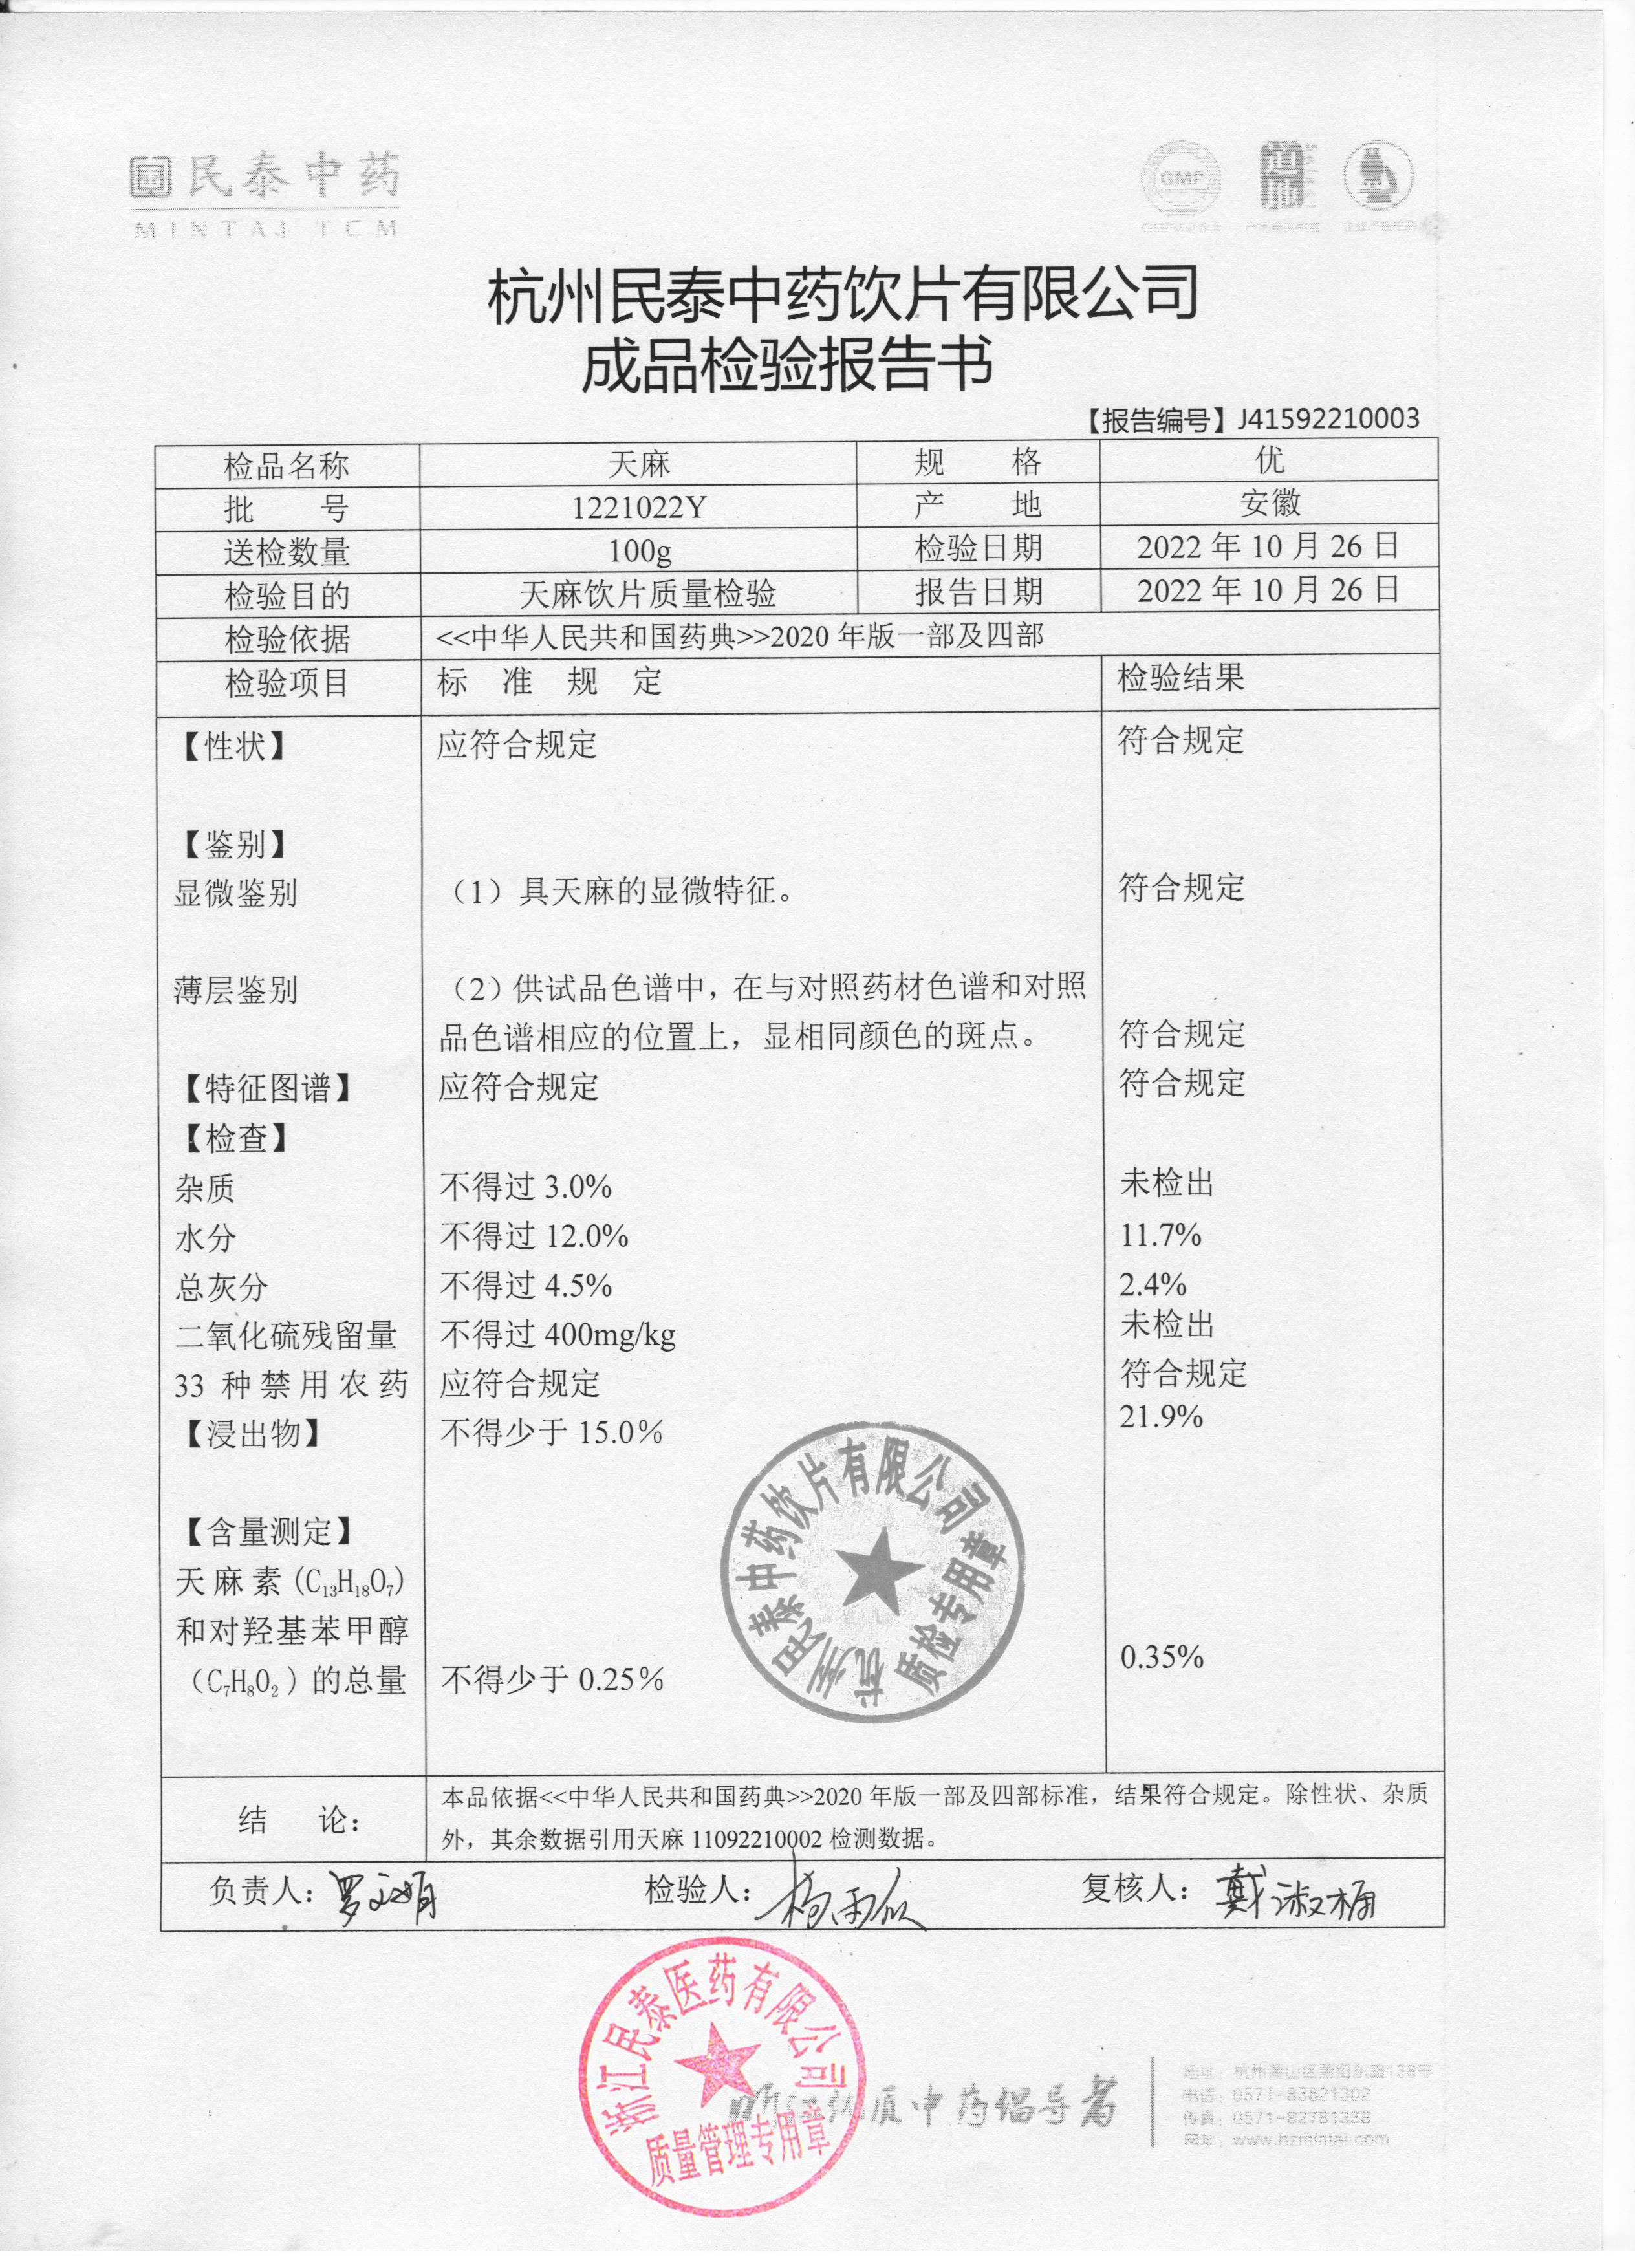 民泰中药
MINTAI TCM
GMP
道地
杭州民泰中药饮片有限公司
成品检验报告书
【报告编号】J41592210003
检品名称 天麻 规 格 优
批 号 1221022Y 产 地 安徽
送检数量 100g 检验日期 2022 年 10 月 26 日
检验目的 天麻饮片质量检验 报告日期 2022 年 10 月 26 日
检验依据 <<中华人民共和国药典>>2020 年版一部及四部
检验项目 标 准 规 定 检验结果
【性状】 应符合规定 符合规定
【鉴别】
显微鉴别 （1）具天麻的显微特征。 符合规定
薄层鉴别 （2）供试品色谱中，在与对照药材色谱和对照
品色谱相应的位置上，显相同颜色的斑点。 符合规定
【特征图谱】 应符合规定 符合规定
【检查】
杂质 不得过 3.0% 未检出
水分 不得过 12.0% 11.7%
总灰分 不得过 4.5% 2.4%
二氧化硫残留量 不得过 400mg/kg 未检出
33 种禁用农药 应符合规定 符合规定
【浸出物】 不得少于 15.0% 21.9%
【含量测定】
天麻素(C₁₃H₁₈O₇)
和对羟基苯甲醇
（C₇H₈O₂）的总量 不得少于 0.25% 0.35%
杭州民泰中药饮片有限公司
质检专用章
结 论： 本品依据<<中华人民共和国药典>>2020 年版一部及四部标准，结果符合规定。除性状、杂质
外，其余数据引用天麻 11092210002 检测数据。
负责人： 检验人： 复核人：戴淑桶
浙江民泰医药有限公司
质量管理专用章
优质中药倡导者
地址：杭州萧山区萧绍东路138号
电话：0571-83821302
传真：0571-82781338
网址：www.hzmintai.com